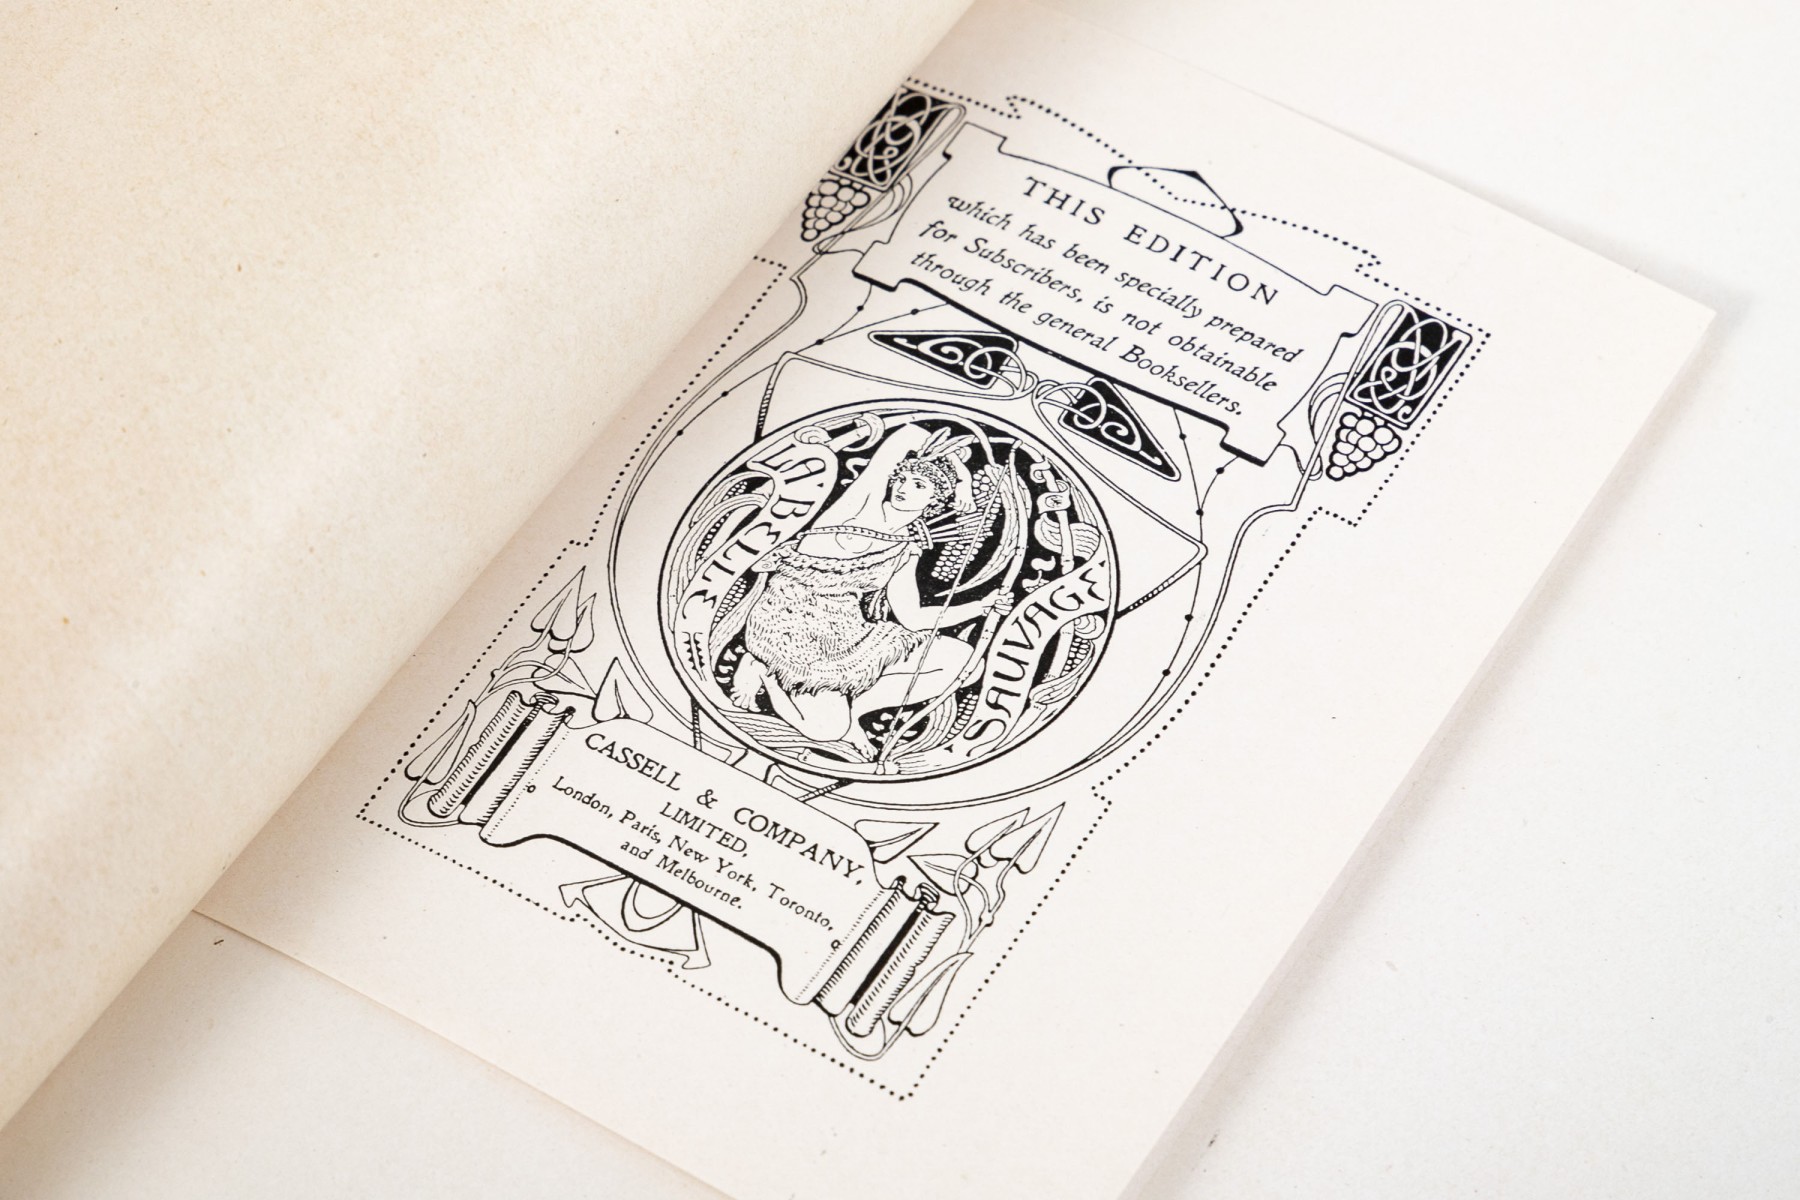 THIS EDITION
which has been specially prepared
for Subscribers, is not obtainable
through the general Booksellers.
LA BELLE
SAUVAGE
CASSELL & COMPANY,
LIMITED,
London, Paris, New York, Toronto,
and Melbourne.